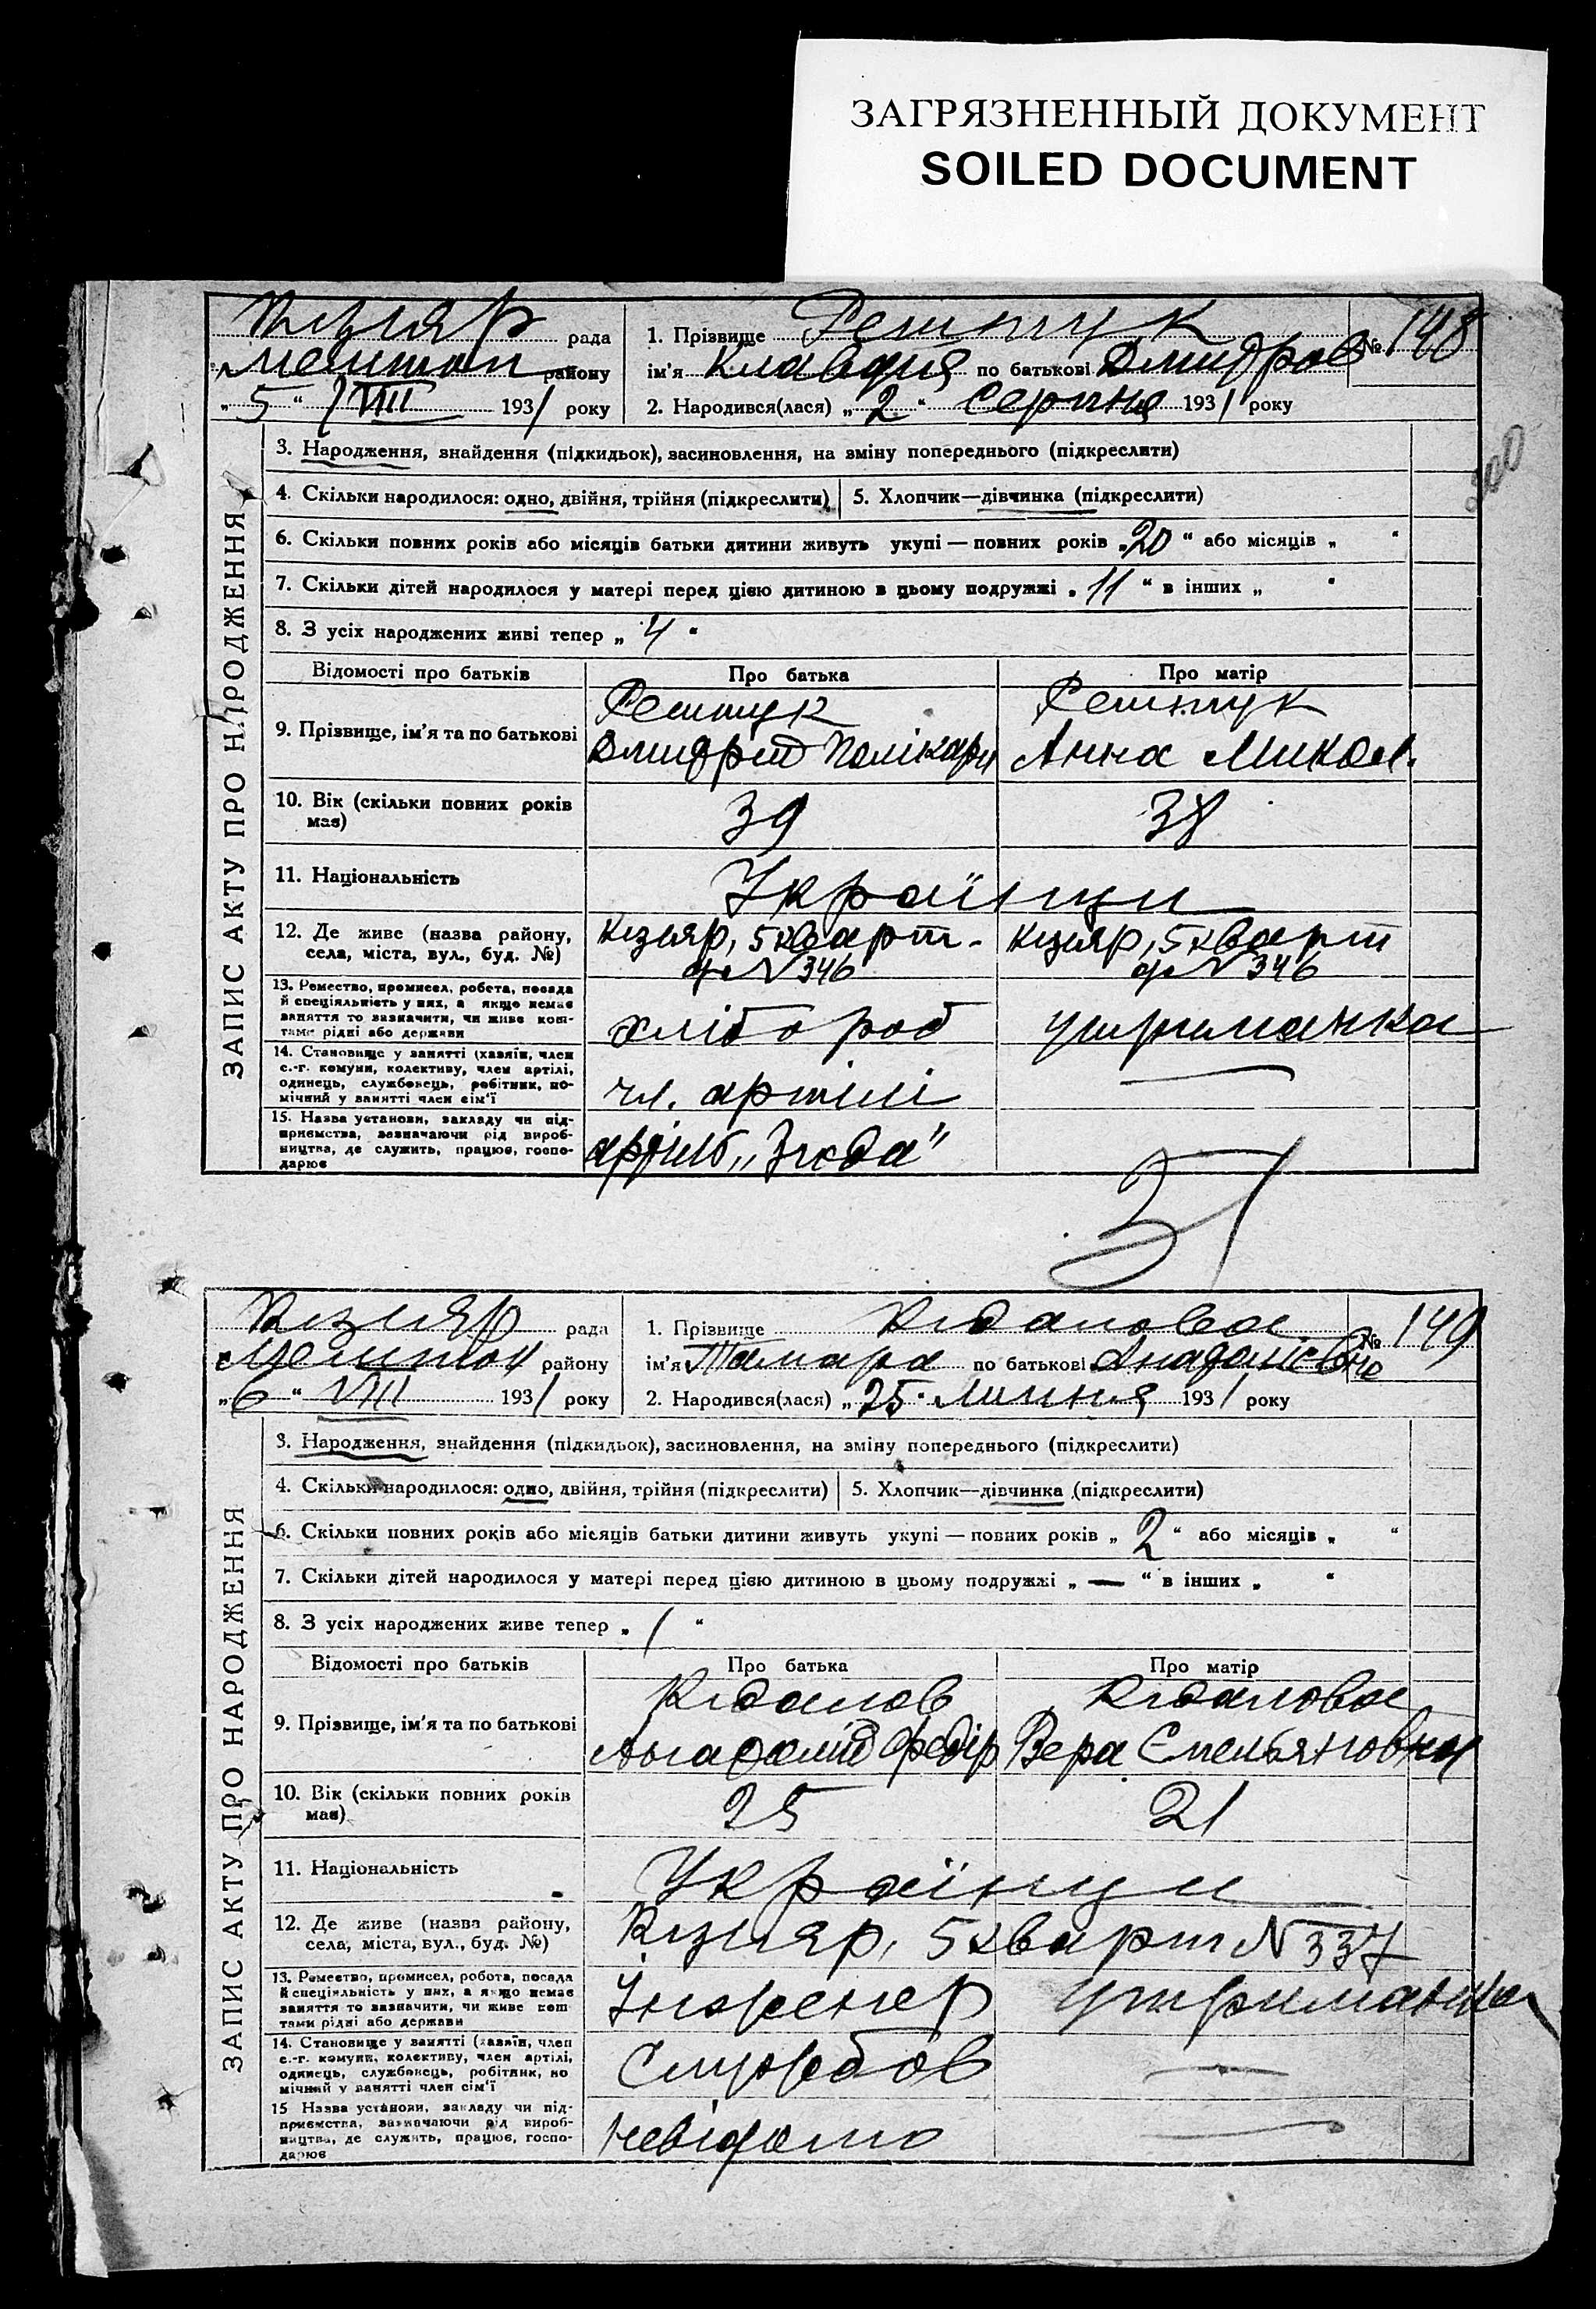 ЗАГРЯЗНЕННЫЙ ДОКУМЕНТ
SOILED DOCUMENT
ЗАПИС АКТУ ПРО НАРОДЖЕННЯ
Кизияр рада
Мелітоп району
„5“ VIII 1931 року
1. Прізвище Рештук № 148
ім'я Клавдия по батькові Дмидров
2. Народився(лася) „2“ Серпня 1931 року
300
3. Народження, знайдення (підкидьок), засиновлення, на зміну попереднього (підкреслити)
4. Скільки народилося: одно, двійня, трійня (підкреслити) 5. Хлопчик—дівчинка (підкреслити)
6. Скільки повних років або місяців батьки дитини живуть укупі — повних років „20“ або місяців „ “
7. Скільки дітей народилося у матері перед цією дитиною в цьому подружжі „11“ в інших „ “
8. З усіх народжених живі тепер „4“
Відомості про батьків Про батька Про матір
9. Прізвище, ім'я та по батькові
Рештук Рештук
Дмидрий Полікарп Анна Микол.
10. Вік (скільки повних років має) 39 38
11. Національність Українци
12. Де живе (назва району, села, міста, вул., буд. №)
Кизияр, 5 кварт. Кизияр, 5 кварт
д. N 346 д. N 346
13. Ремество, промисел, робота, посада
й спеціяльність у них, а якщо немає
заняття то зазначити, чи живе кош-
тами рідні або держави
хлібороб утриманка
14. Становище у занятті (хазяїн, член
с.-г. комуни, колективу, член артілі,
одинець, службовець, робітник, по-
мічний у занятті член сім'ї
чл. артілі —
15. Назва установи, закладу чи під-
приємства, зазначаючи рід вироб-
ництва, де служить, працює, госпо-
дарює
артіль „Згода“
ЗАПИС АКТУ ПРО НАРОДЖЕННЯ
Кизияр рада
Мелітоп району
„6“ VIII 1931 року
1. Прізвище № 149
ім'я Тамара по батькові
2. Народився(лася) „25“ Липня 1931 року
3. Народження, знайдення (підкидьок), засиновлення, на зміну попереднього (підкреслити)
4. Скільки народилося: одно, двійня, трійня (підкреслити) 5. Хлопчик—дівчинка (підкреслити)
6. Скільки повних років або місяців батьки дитини живуть укупі — повних років „2“ або місяців „ “
7. Скільки дітей народилося у матері перед цією дитиною в цьому подружжі „—“ в інших „ “
8. З усіх народжених живе тепер „1“
Відомості про батьків Про батька Про матір
9. Прізвище, ім'я та по батькові
Федір Вера Емельяновна
10. Вік (скільки повних років має) 25 21
11. Національність Українци
12. Де живе (назва району, села, міста, вул., буд. №)
Кизияр, 5 кварт N 337
13. Ремество, промисел, робота, посада
й спеціяльність у них, а якщо немає
заняття то зазначити, чи живе кош-
тами рідні або держави
Інженер утриманка
14. Становище у занятті (хазяїн, член
с.-г. комуни, колективу, член артілі,
одинець, службовець, робітник, по-
мічний у занятті член сім'ї
Службов —
15 Назва установи, закладу чи під-
приємства, зазначаючи рід вироб-
ництва, де служить, працює, госпо-
дарює
невідомо —